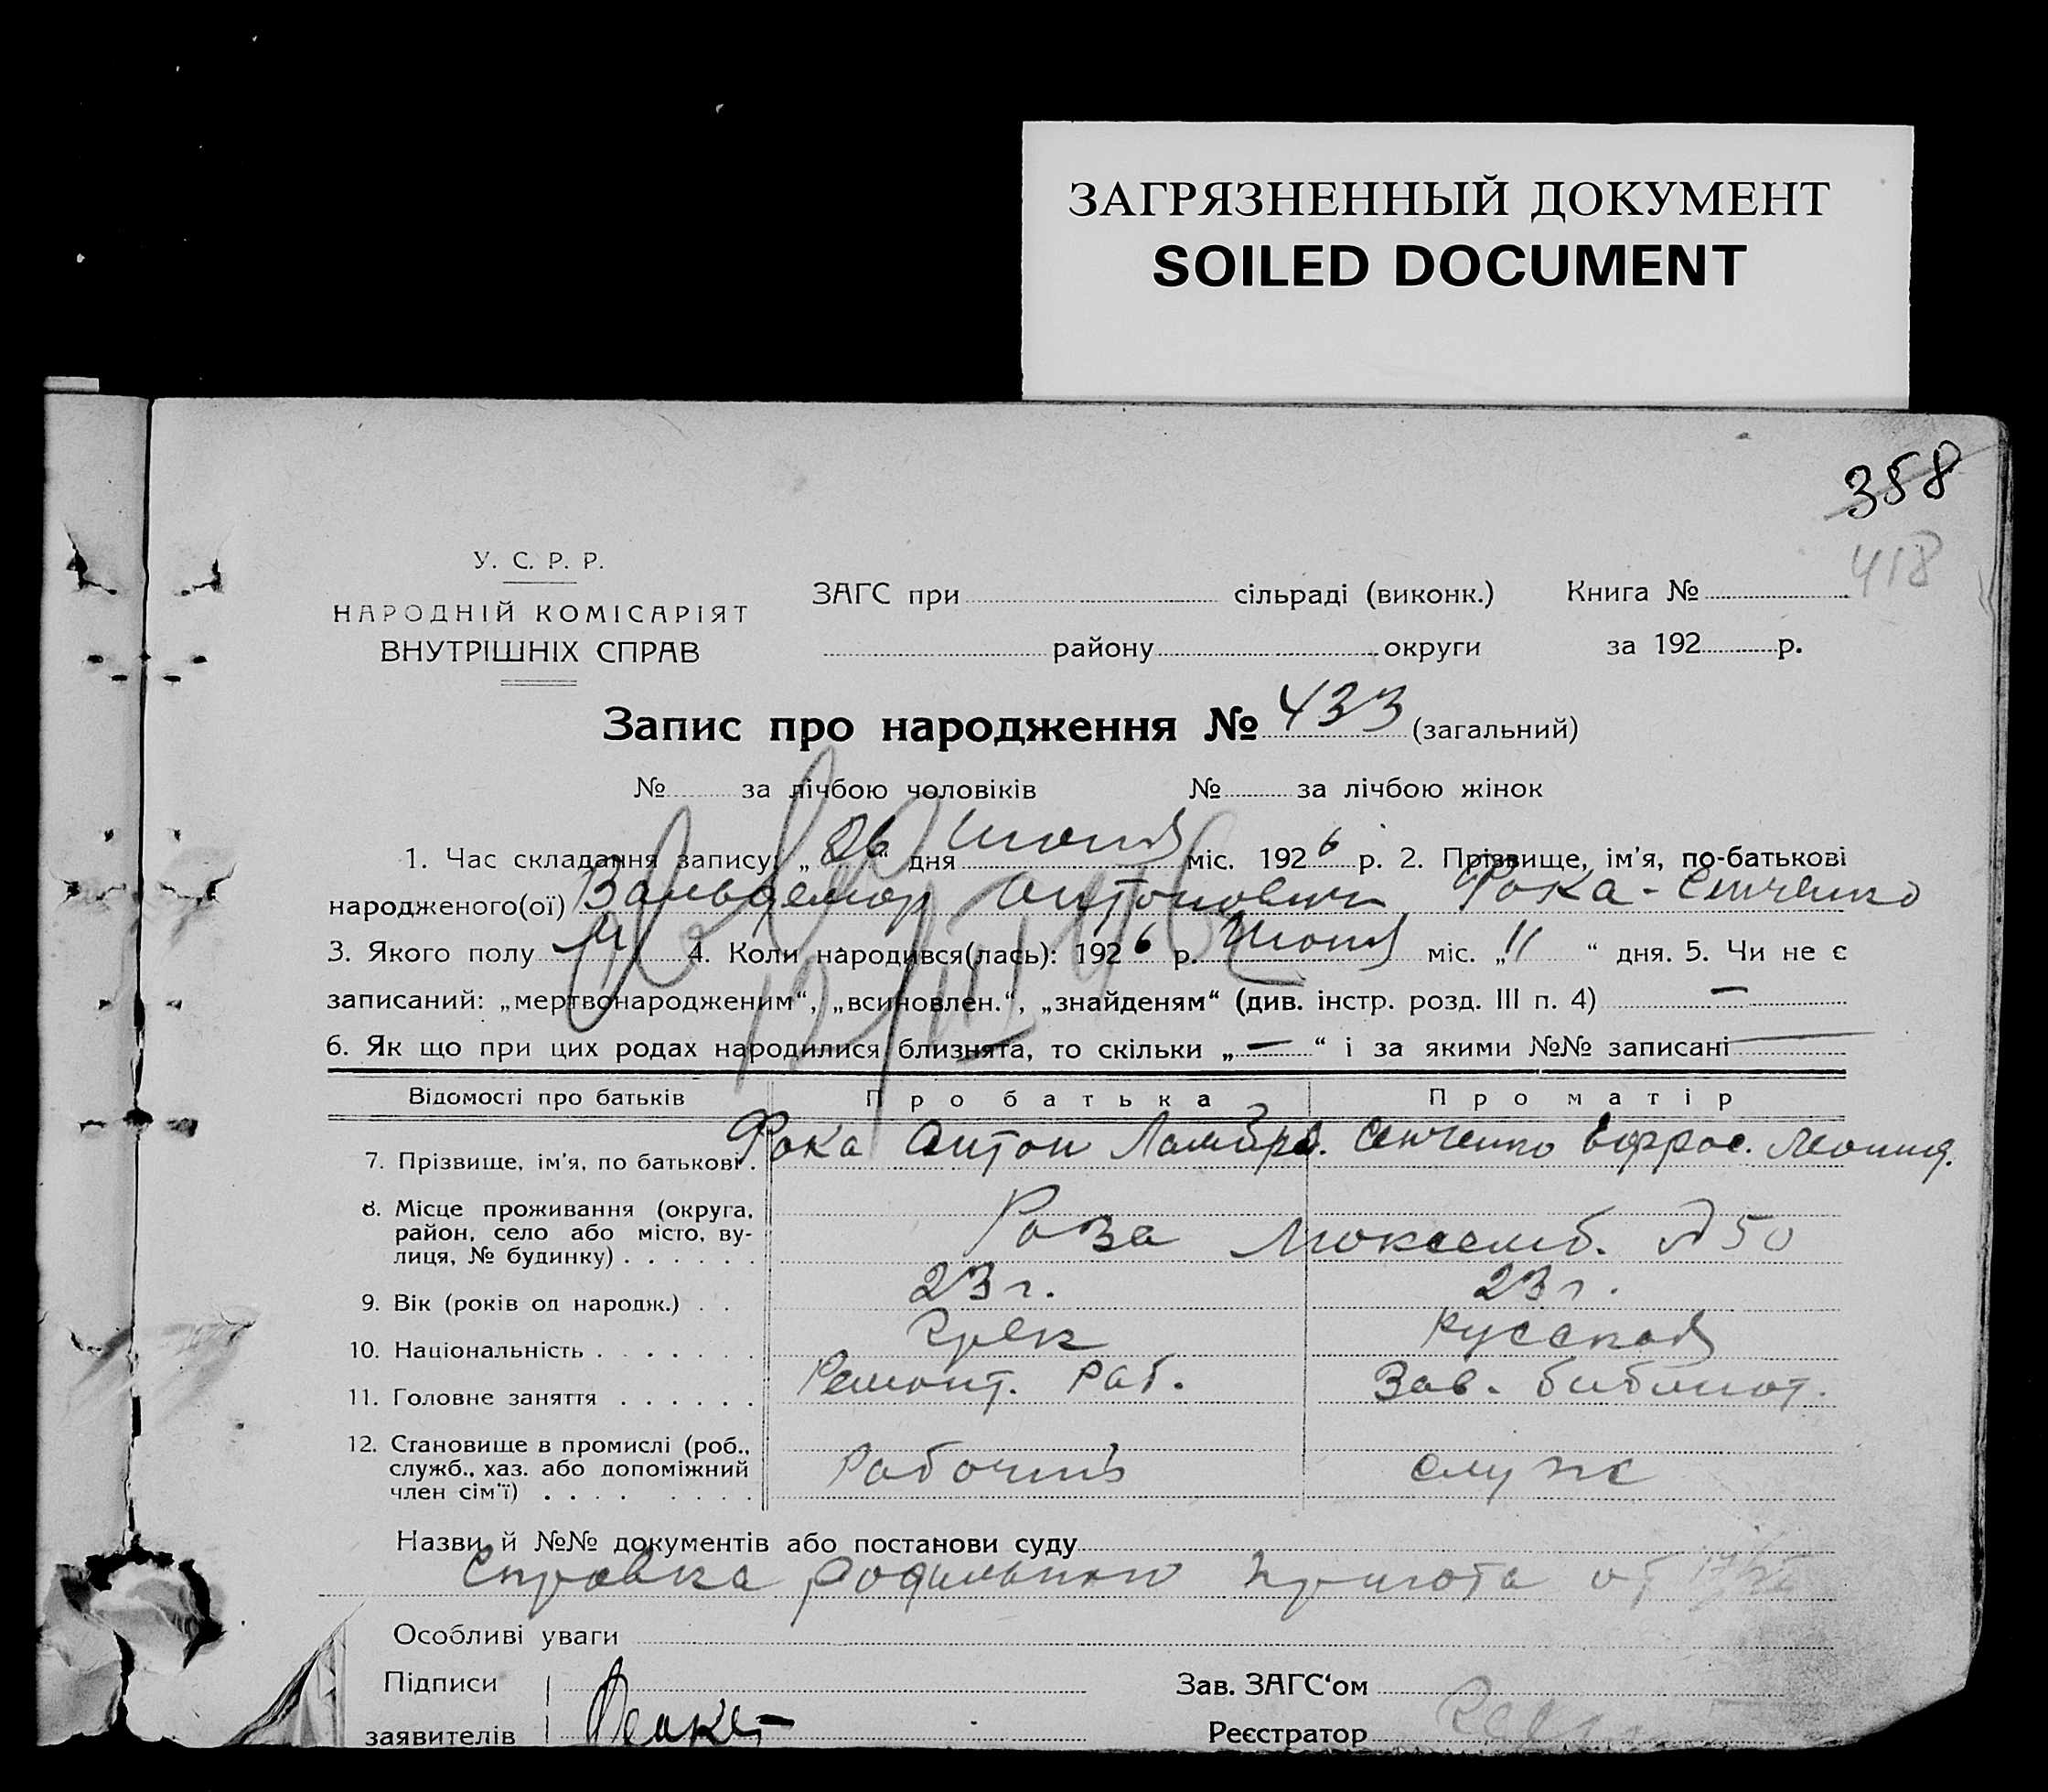 ЗАГРЯЗНЕННЫЙ ДОКУМЕНТ
SOILED DOCUMENT
358
418
У. С. Р. Р.
НАРОДНІЙ КОМІСАРІЯТ
ВНУТРІШНІХ СПРАВ
ЗАГС при сільраді (виконк.) Книга №
району округи за 192 р.
Запис про народження № 433 (загальний)
№ за лічбою чоловіків № за лічбою жінок
1. Час складання запису: „26“ дня Июня міс. 1926 р. 2. Прізвище, ім'я, по-батькові
народженого(ої) Вальдемар Антонович Фока-Сенченко
3. Якого полу М 4. Коли народився(лась): 1926 р. Июня міс. „11“ дня. 5. Чи не є
записаний: „мертвонародженим“, „всиновлен.“, „знайденям“ (див. інстр. розд. III п. 4) —
6. Як що при цих родах народилися близнята, то скільки „—“ і за якими №№ записані —
Відомості про батьків Про батька Про матір
7. Прізвище, ім'я, по батькові. Фока Антон Сенченко Ефрос. Леонид.
8. Місце проживання (округа, район, село або місто, вулиця, № будинку) . . . . . . Роза Люксемб. № 50
9. Вік (років од народж.) . . 23 г. 23 г.
10. Національність . . . . . . . Грек Русская
11. Головне заняття . . . . . . Ремонт. раб. Зав. библиот.
12. Становище в промислі (роб., служб., хаз. або допоміжний член сім'ї) . . . . . . . . Рабочий служ
Назви й №№ документів або постанови суду
Справка родильного приюта от
Особливі уваги
Підписи Зав. ЗАГС‘ом
заявителів Реєстратор